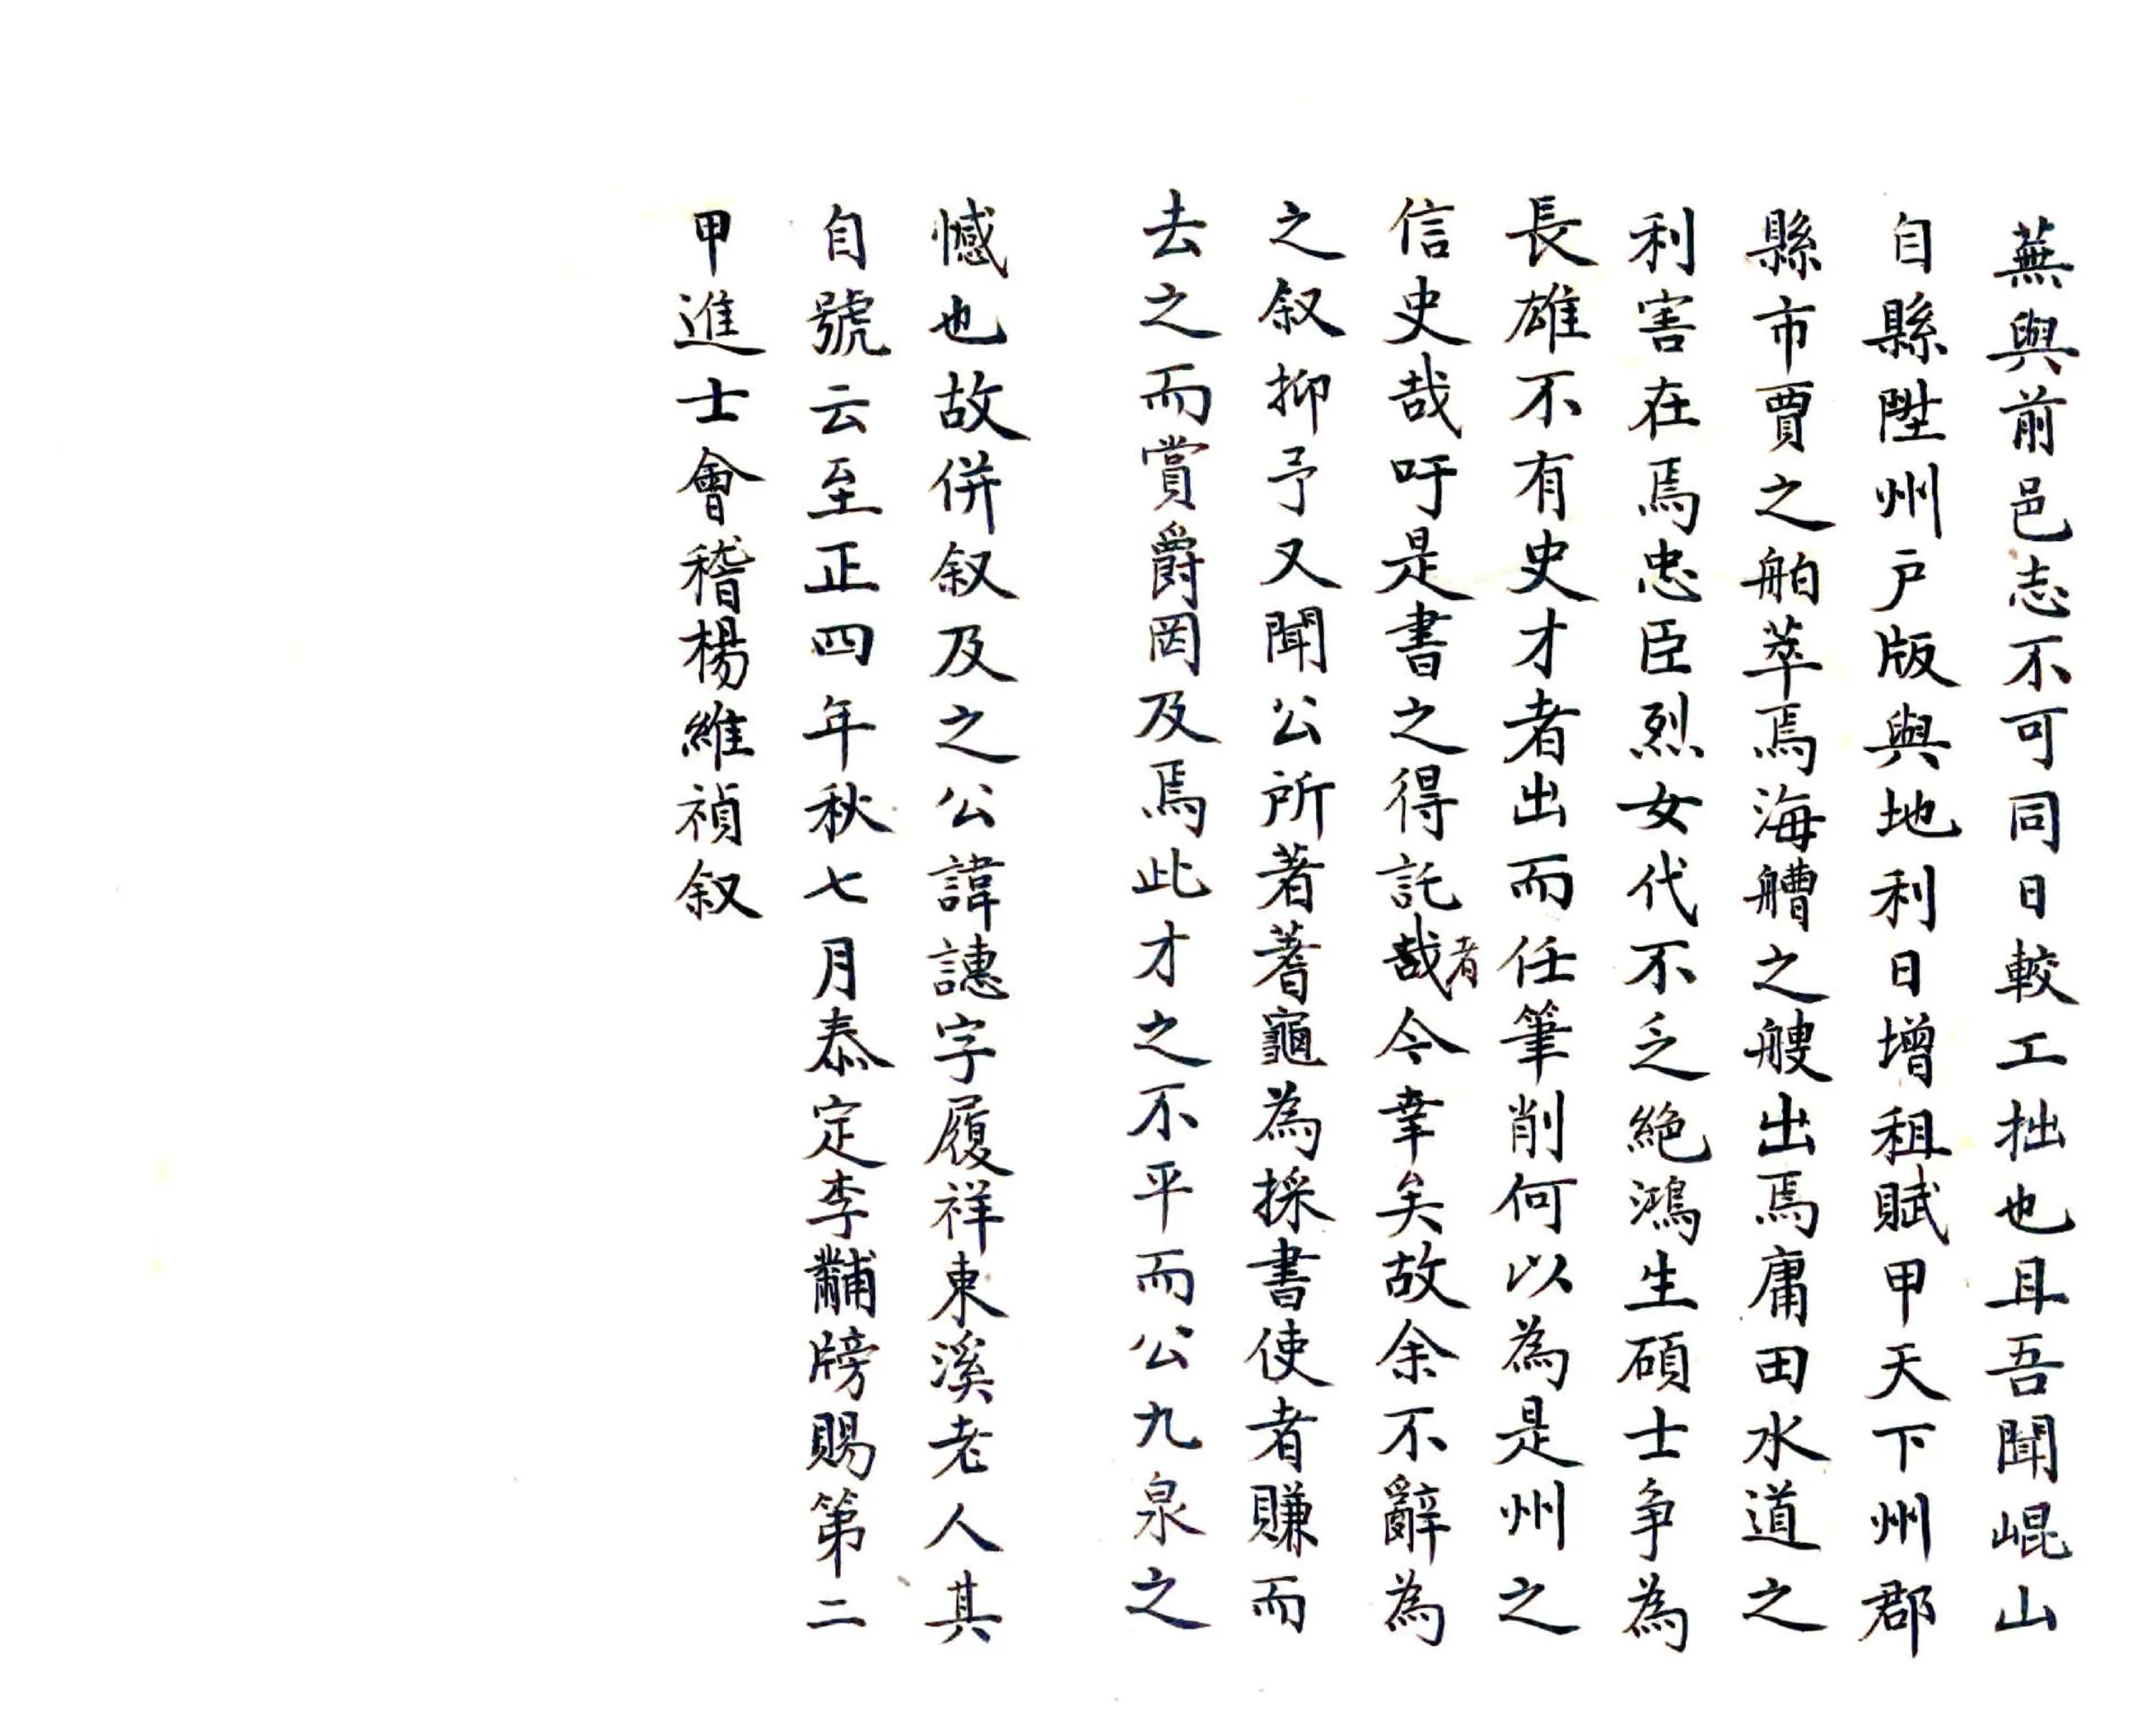 蕪與前邑志不可同日較工拙也且吾聞崐山
自縣陞州戸版與地利日増租賦甲天下州郡
縣市賈之舶萃焉海艚之艘出焉庸田水道之
利害在焉忠臣烈女代不乏絶鴻生碩士争為
長雄不有史才者出而任筆削何以為是州之
信史哉吁是書之得託哉者今幸矣故余不辭為
之叙抑予又聞公所著蓍龜為採書使者賺而
去之而賞爵罔及焉此才之不平而公九泉之
憾也故併叙及之公諱譓字履祥東溪老人其
自號云至正四年秋七月泰定李黼牓賜第二
甲進士會稽楊維禎叙